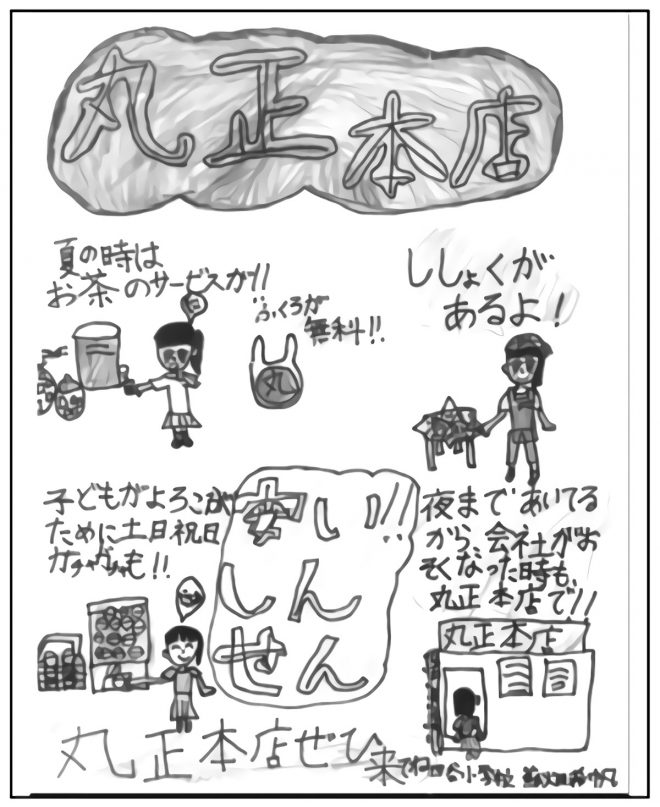 丸正本店
夏の時は
お茶のサービスが!!
ふくろが
無料!!
丸
ししょくが
あるよ!
子どもがよろこぶ
ために土日祝日
ガチャガチャも!!
安い!!
しん
せん
夜まであいてる
から、会社がお
そくなった時も、
丸正本店で!!
丸正本店
丸正本店ぜひ
来てね
小学校